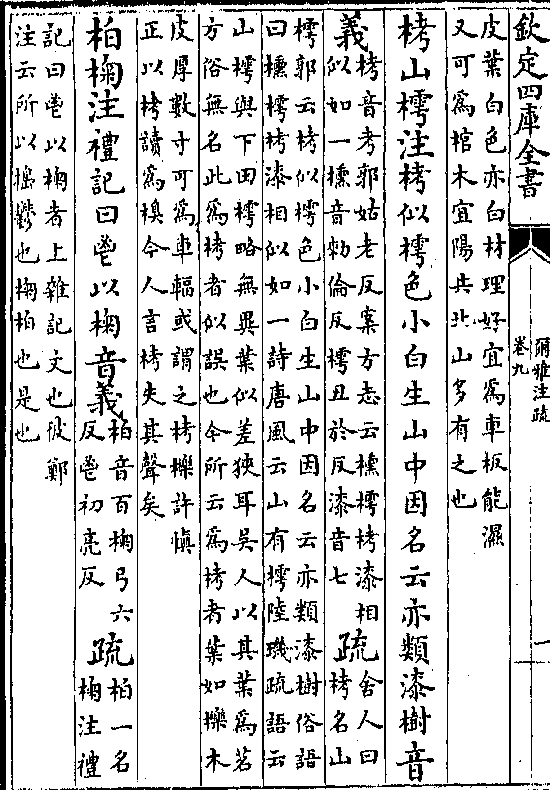 欽定四庫全書
爾雅注疏
卷九
皮葉白色亦白材理好宜為車板能濕
又可為棺木宜陽共北山多有之也
栲山樗注栲似樗色小白生山中因名云亦類漆樹音
義
栲音考郭姑老反案方志云櫄樗栲漆相
似如一櫄音勑倫反樗丑於反漆音七
疏
舍人曰
栲名山
樗郭云栲似樗色小白生山中因名云亦類漆樹俗語
曰櫄樗栲漆相似如一詩唐風云山有樗陸璣疏語云
山樗與下田樗略無異葉似差狹耳吳人以其葉為茗
方俗無名此為栲者似誤也今所云為栲者葉如櫟木
皮厚數寸可為車輻或謂之栲櫟許慎
正以栲讀為糗今人言栲失其聲矣
柏椈注禮記曰鬯以椈音義
柏音百椈弓六
反鬯初亮反
疏
柏一名
椈注禮
記曰鬯以椈者上雜記文也彼鄭
注云所以擣鬱也椈柏也是也